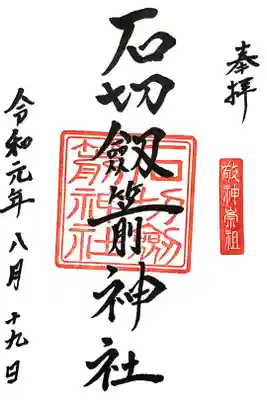 奉拝
敬神崇祖
石切劔箭神社
石切劔
箭神社
令和元年八月十九日